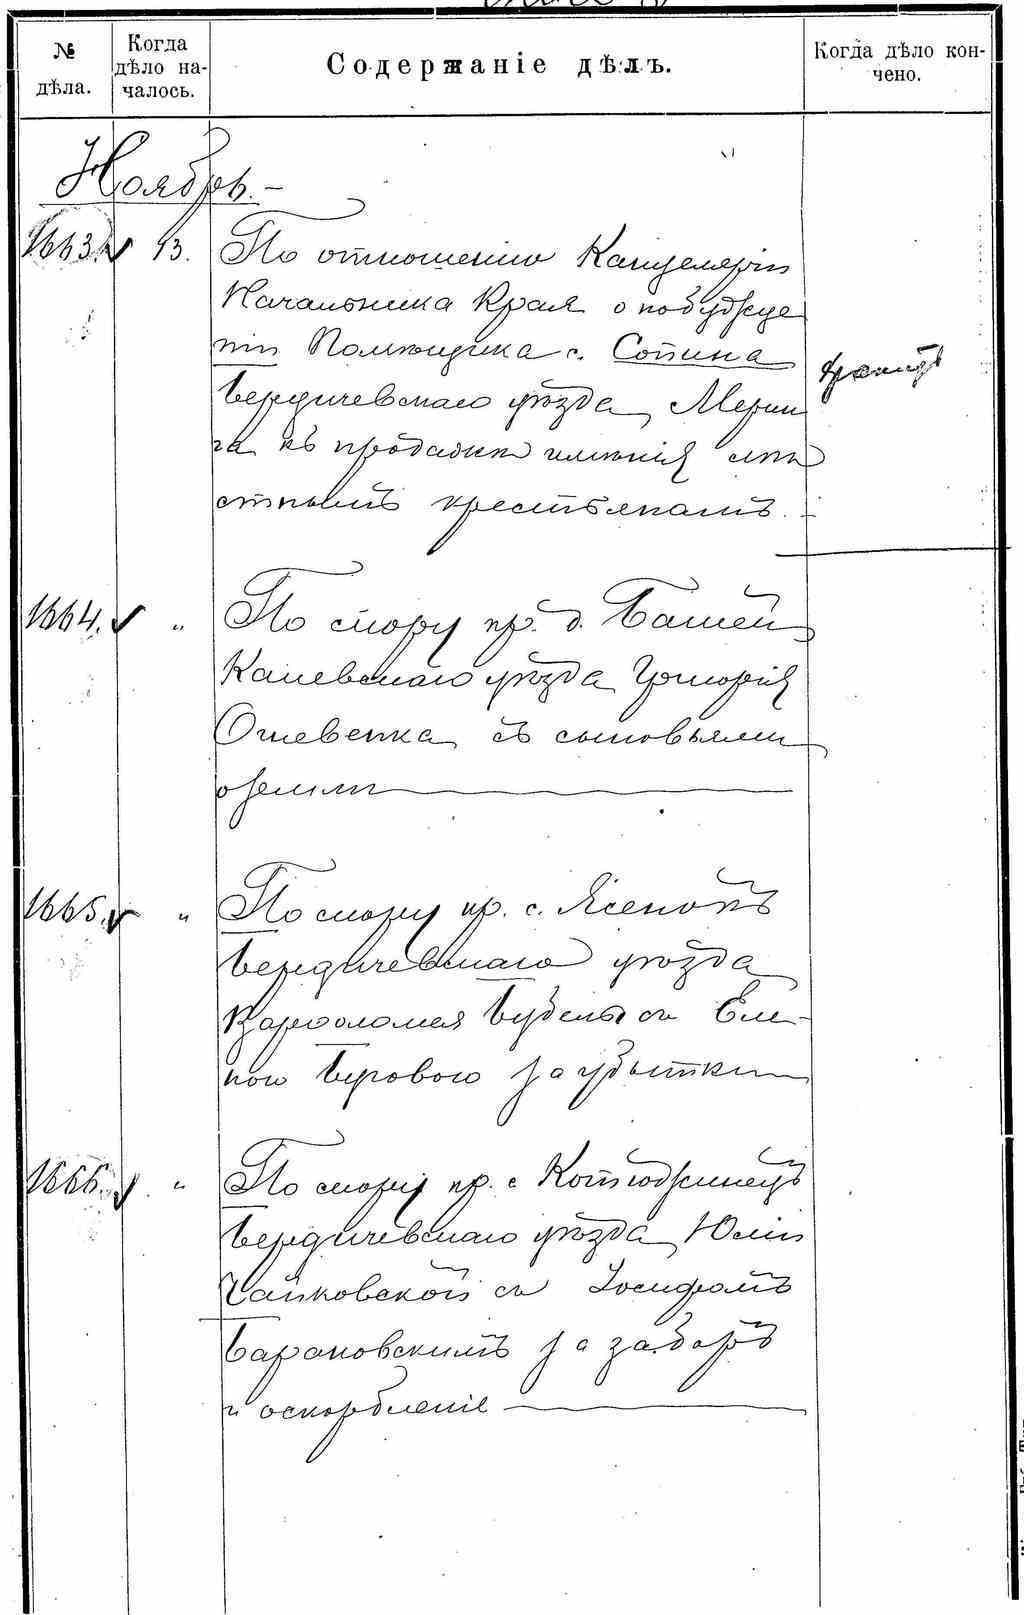 № дѣла.
Когда дѣло началось.
Содержаніе дѣлъ.
Когда дѣло кончено.
Ноябрь.-
1663. 13. По отношенію Канцеляріи
Начальника Края о побужде
ніи Помѣщика с. Сопина
Бердичевскаго уѣзда Мерин
га къ продажѣ имѣнія мѣ
стнымъ крестьянамъ.
1664. „ По спору кр. д. Башей
Каневскаго уѣзда Григорія
с сыновьями
о землѣ
1665. „ По спору кр. с. Ясенокъ
Бердичевскаго уѣзда
Варфоломея съ Еле-
ною за убытки
1666. „ По спору кр. с Котюжинецъ
Бердичевскаго уѣзда Юліи
Чайковской съ Іосифомъ
Барановскимъ за заборъ
и оскорбленіе